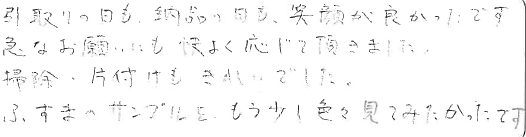 引取りの日も、納品の日も、笑顔が良かったです
急なお願いにも快よく応じて頂きました。
掃除・片付けもきれいでした。
ふすまのサンプルを、もう少し色々見てみたかったです